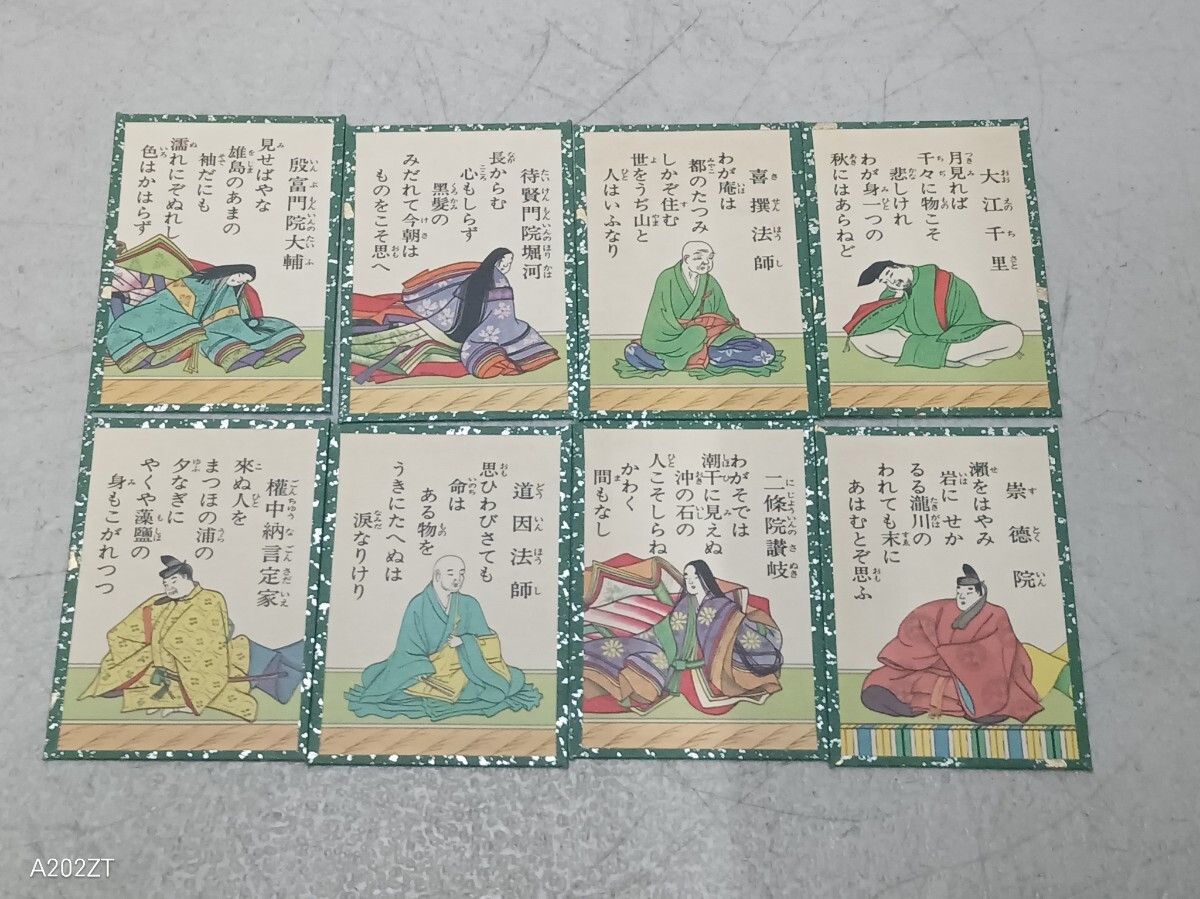 大江千里
月見れば
千々に物こそ
悲しけれ
わが身一つの
秋にはあらねど
喜撰法師
わが庵は
都のたつみ
しかぞ住む
世をうぢ山と
人はいふなり
待賢門院堀河
長からむ
心もしらず
黒髪の
みだれて今朝は
ものをこそ思へ
殷富門院大輔
見せばやな
雄島のあまの
袖だにも
濡れにぞぬれし
色はかはらず
崇德院
瀬をはやみ
岩にせか
るる瀧川の
われても末に
あはむとぞ思ふ
二條院讃岐
わがそでは
潮干に見えぬ
沖の石の
人こそしらね
かわく
間もなし
道因法師
思ひわびさても
命は
ある物を
うきにたへぬは
淚なりけり
權中納言定家
來ぬ人を
まつほの浦の
夕なぎに
やくや藻鹽の
身もこがれつつ
A202ZT